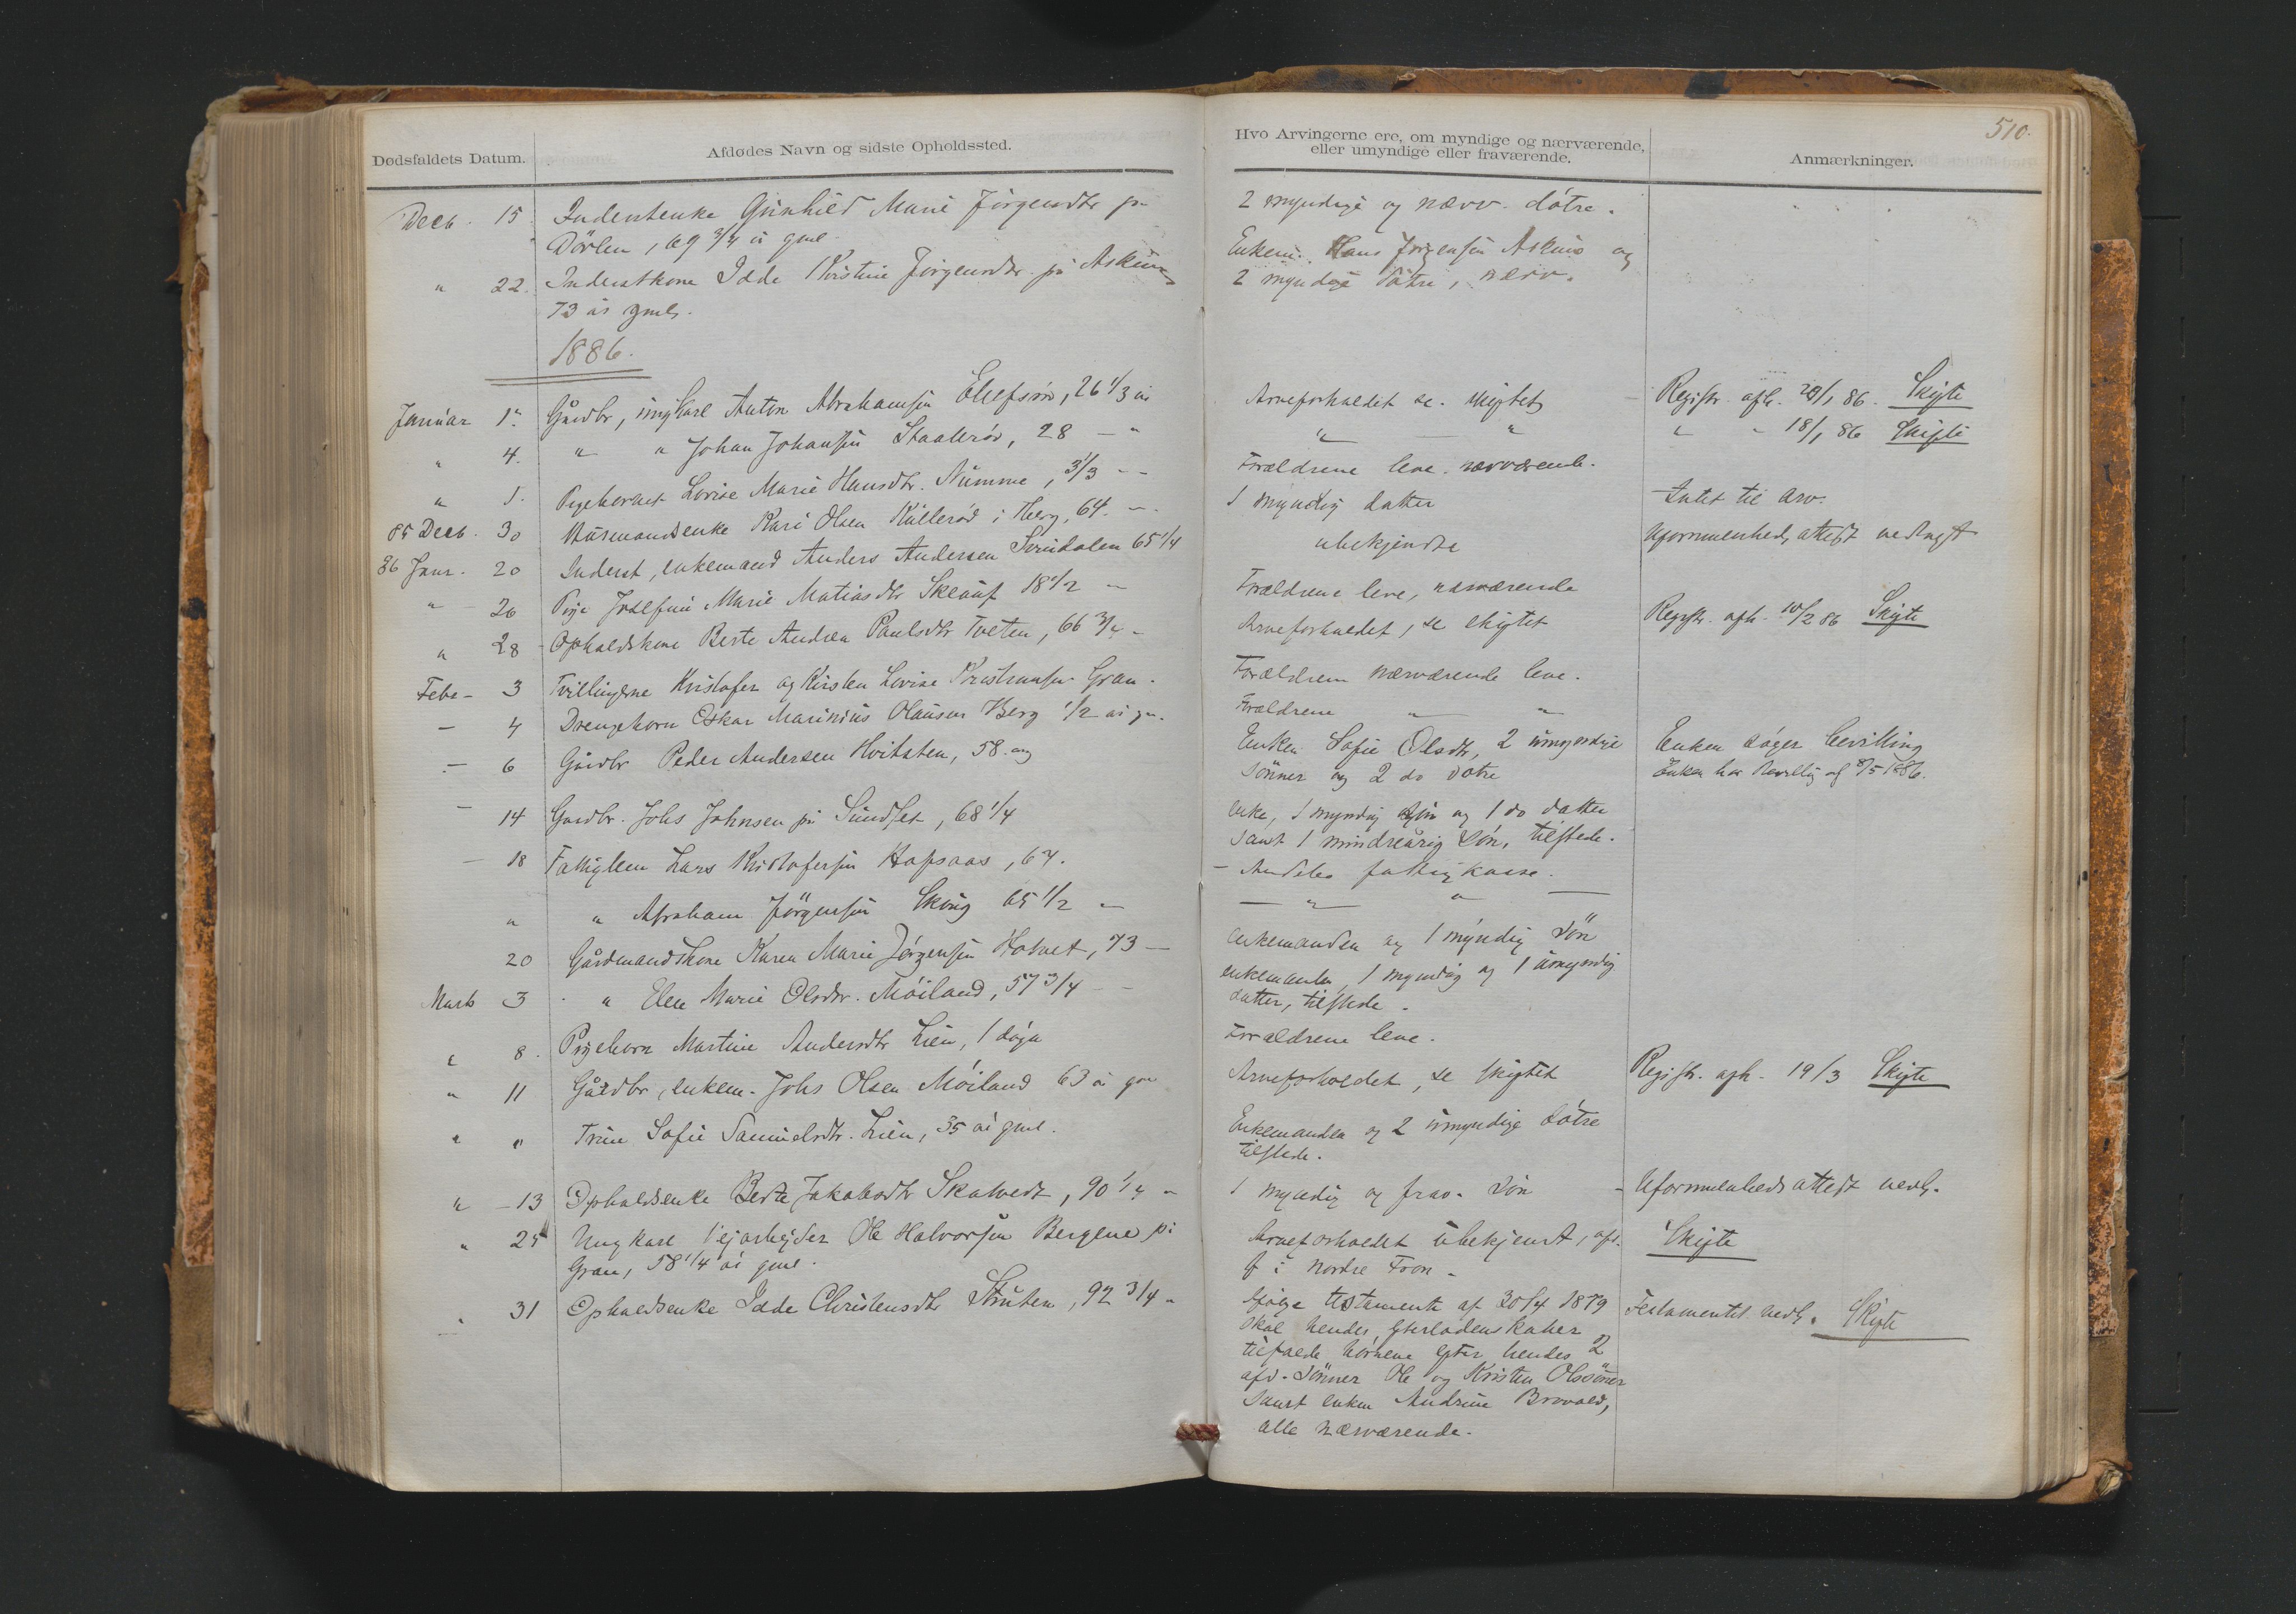 510.
Dødsfaldets Datum. Afdødes Navn og sidste Opholdssted. Hvo Arvingerne ere, om myndige og nærværende, eller umyndige eller fraværende. Anmærkninger.
Decb. 15. Inderstenke Gunhild Marie Jörgensdtr på 2 myndige og nærv. døtre.
Dörlen, 69 3/4 år gml.
" 22. Inderstkone Idde Kristine Jörgensdtr. på Askim Enkem. Hans Jörgensen Askim og
73 år gml. 2 myndige døtre, nærv.
1886.
Januar 1. Gårdbr, ungkarl Anton Abrahamsen Ellefsrød, 26 1/3 år Arveforholdet se. skiftet Registr. afh. 20/1 86. Skifte
" 4. " " Johan Johansen Staalerød, 28 — " " — " " " 18/1 86 Skifte
" 5. Pigebarnet Lovise Marie Hansdtr. Numme, 3 1/3 -- Forældrene leve. nærværende.
85 Decb. 30 Husmandsenke Kari Olsen Kullerød i Herg, 64. — 1 myndig datter Intet til arv.
86 Janr. 20 Inderst, enkemand Anders Andersen 65 1/4 ubekjendte Uformuenheds attest nedlagt
" 26 Pige Josefine Marie Matiasdtr Skaug 18 1/2 — Forældrene leve, nærværende
" 28 Opholdskone Berte Andrea Paulsdtr Tveten, 66 3/4 - Arveforholdet, se skiftet Registr. afh. 10/2 86 Skifte
Febr - 3 Tvillingerne Kristofer og Kirsten Lovise Kristiansen Gran. Forældrene nærværende leve.
— 4 Drengebarn Oskar Marinius Olausen Berg 1/2 år gm. Forældrene " "
— 6 Gårdbr Peder Andersen Hvitsten, 58. Enken Sofie Olsdtr, 2 umyndige Enken søger bevilling
sønner og 2 do døtre Enken har bevillig af 8/5 1886.
— 14 Gardbr. Johs Johnsen på Sundset, 68 1/4 enke, 1 myndig søn og 1 do datter
samt 1 mindreårig søn, tilstede.
— 18 Fattiglem Lars Kristofersen Hafsaas, 67. - Andebo fattigkasse.
" " Abraham Jörgensen Skoug 65 1/2 — — " " —
20 Gårdmandskone Karen Marie Jørgensen Hotvet, 73 — enkemanden og 1 myndig søn
Marts 3 " Elen Marie Olsdtr. Møiland, 57 3/4 - enkemanden, 1 myndig og 1 umyndig
datter, tilstede.
" 8. Pigebarn Martine Andersdtr Lien, 1 døgn Forældrene leve.
" 11 Gårdbr, enkem. Johs Olsen Møiland 63 år gm Arveforholdet, se skiftet Registr. afh. 19/3 Skifte
" " Trine Sofie Samuelsdtr. Lien, 35 år gml. Enkemanden og 2 umyndige døtre
tilstede.
" - 13 Opholdsenke Berte Jakobsdtr Skatvedt, 90 1/4 — 1 myndig og frav. søn - Uformuenheds attest nedl.
" 25 Ungkarl Vejarbejder Ole Halvorsen Bergene på Arveforholdet ubekjendt, afd. Skifte
Gran, 58 1/4 år gml. f i Nordre Fron.
" 31 Opholdsenke Idde Christensdtr Struten, 92 3/4 " Ifølge testamente af 30/4 1879 Testamentet nedl. Skifte
skal hendes efterladenskaber
tilfalde børnene efter hendes 2
afd. Sönner Ole og Kristen Olssöner
samt enken Andrine Brovold,
alle nærværende.